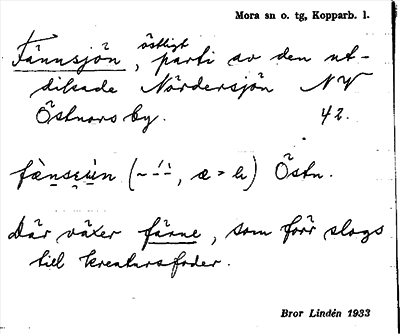 Mora sn o. tg, Kopparb. l.
östligt
Fännsjön, parti av den ut-
dikade Nördersjön NV
Östnors by. 42.
fæ̀nsęún (~ ́ ́, æ = h) Östn.
där växer färne, som förr slogs
till kreatursfoder.
Bror Lindén 1933